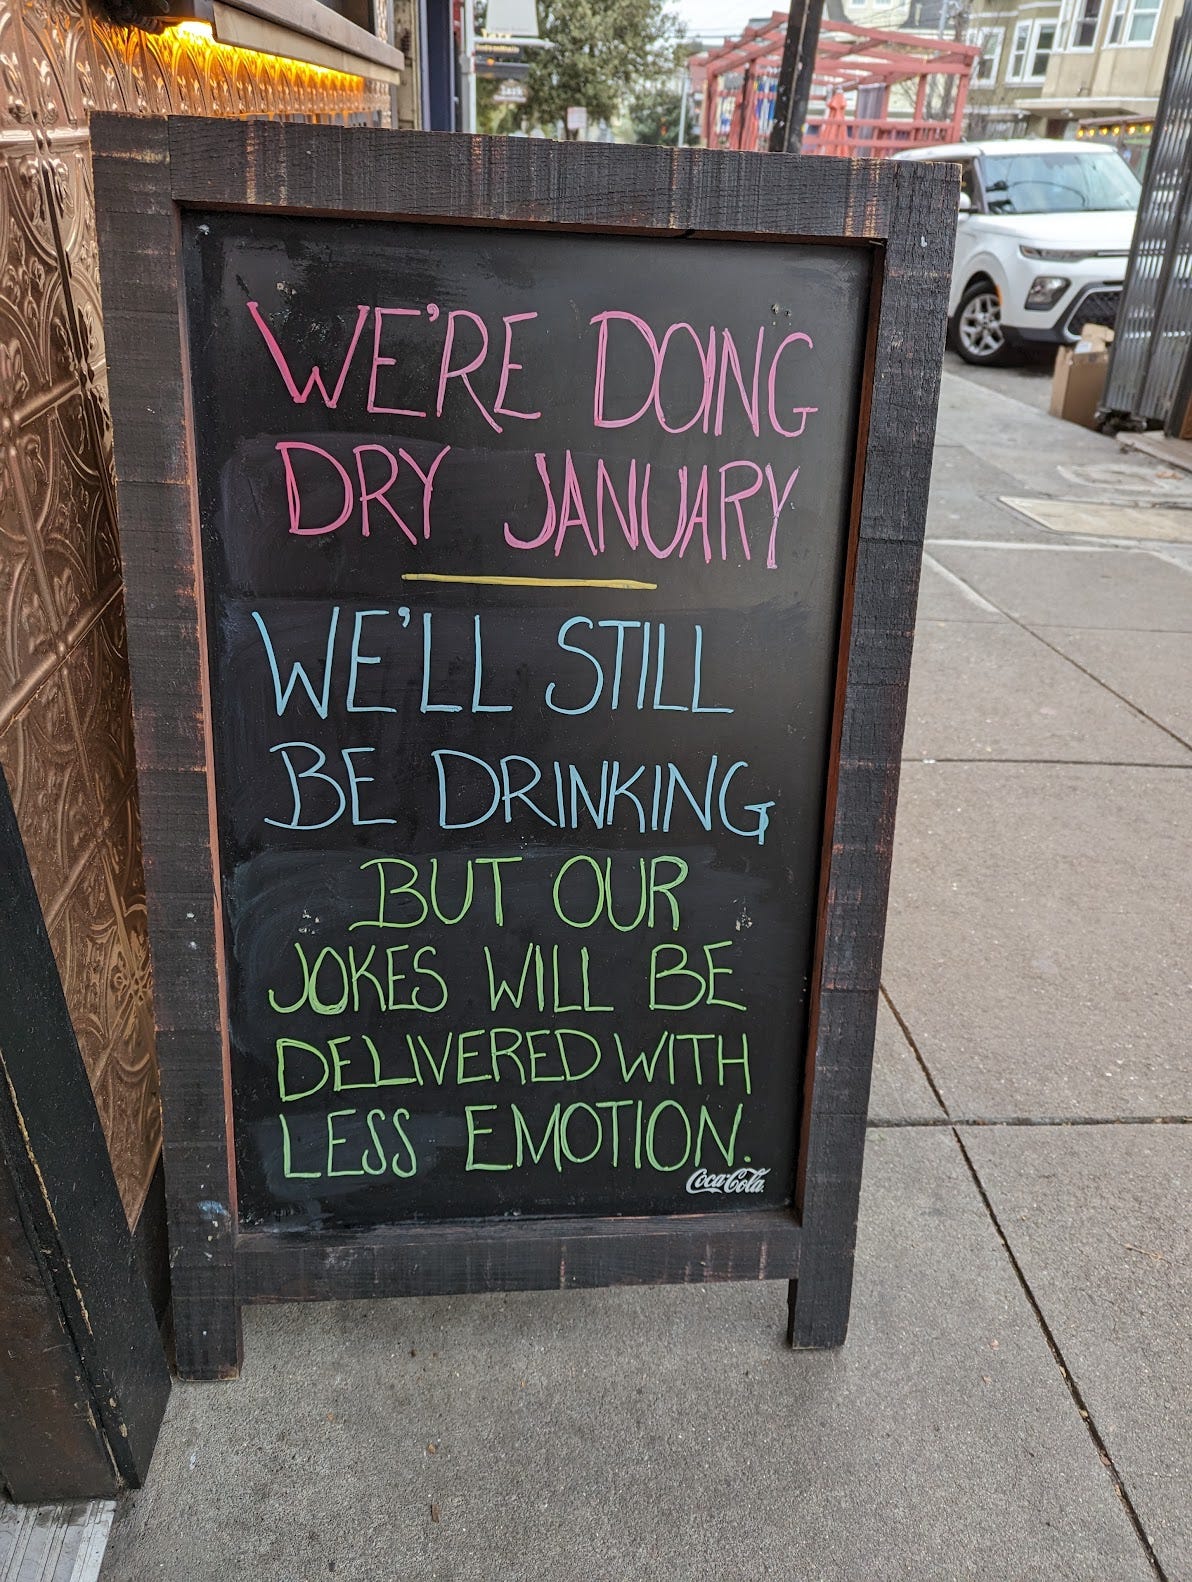 WE'RE DOING
DRY JANUARY
WE'LL STILL
BE DRINKING
BUT OUR
JOKES WILL BE
DELIVERED WITH
LESS EMOTION.
Coca-Cola